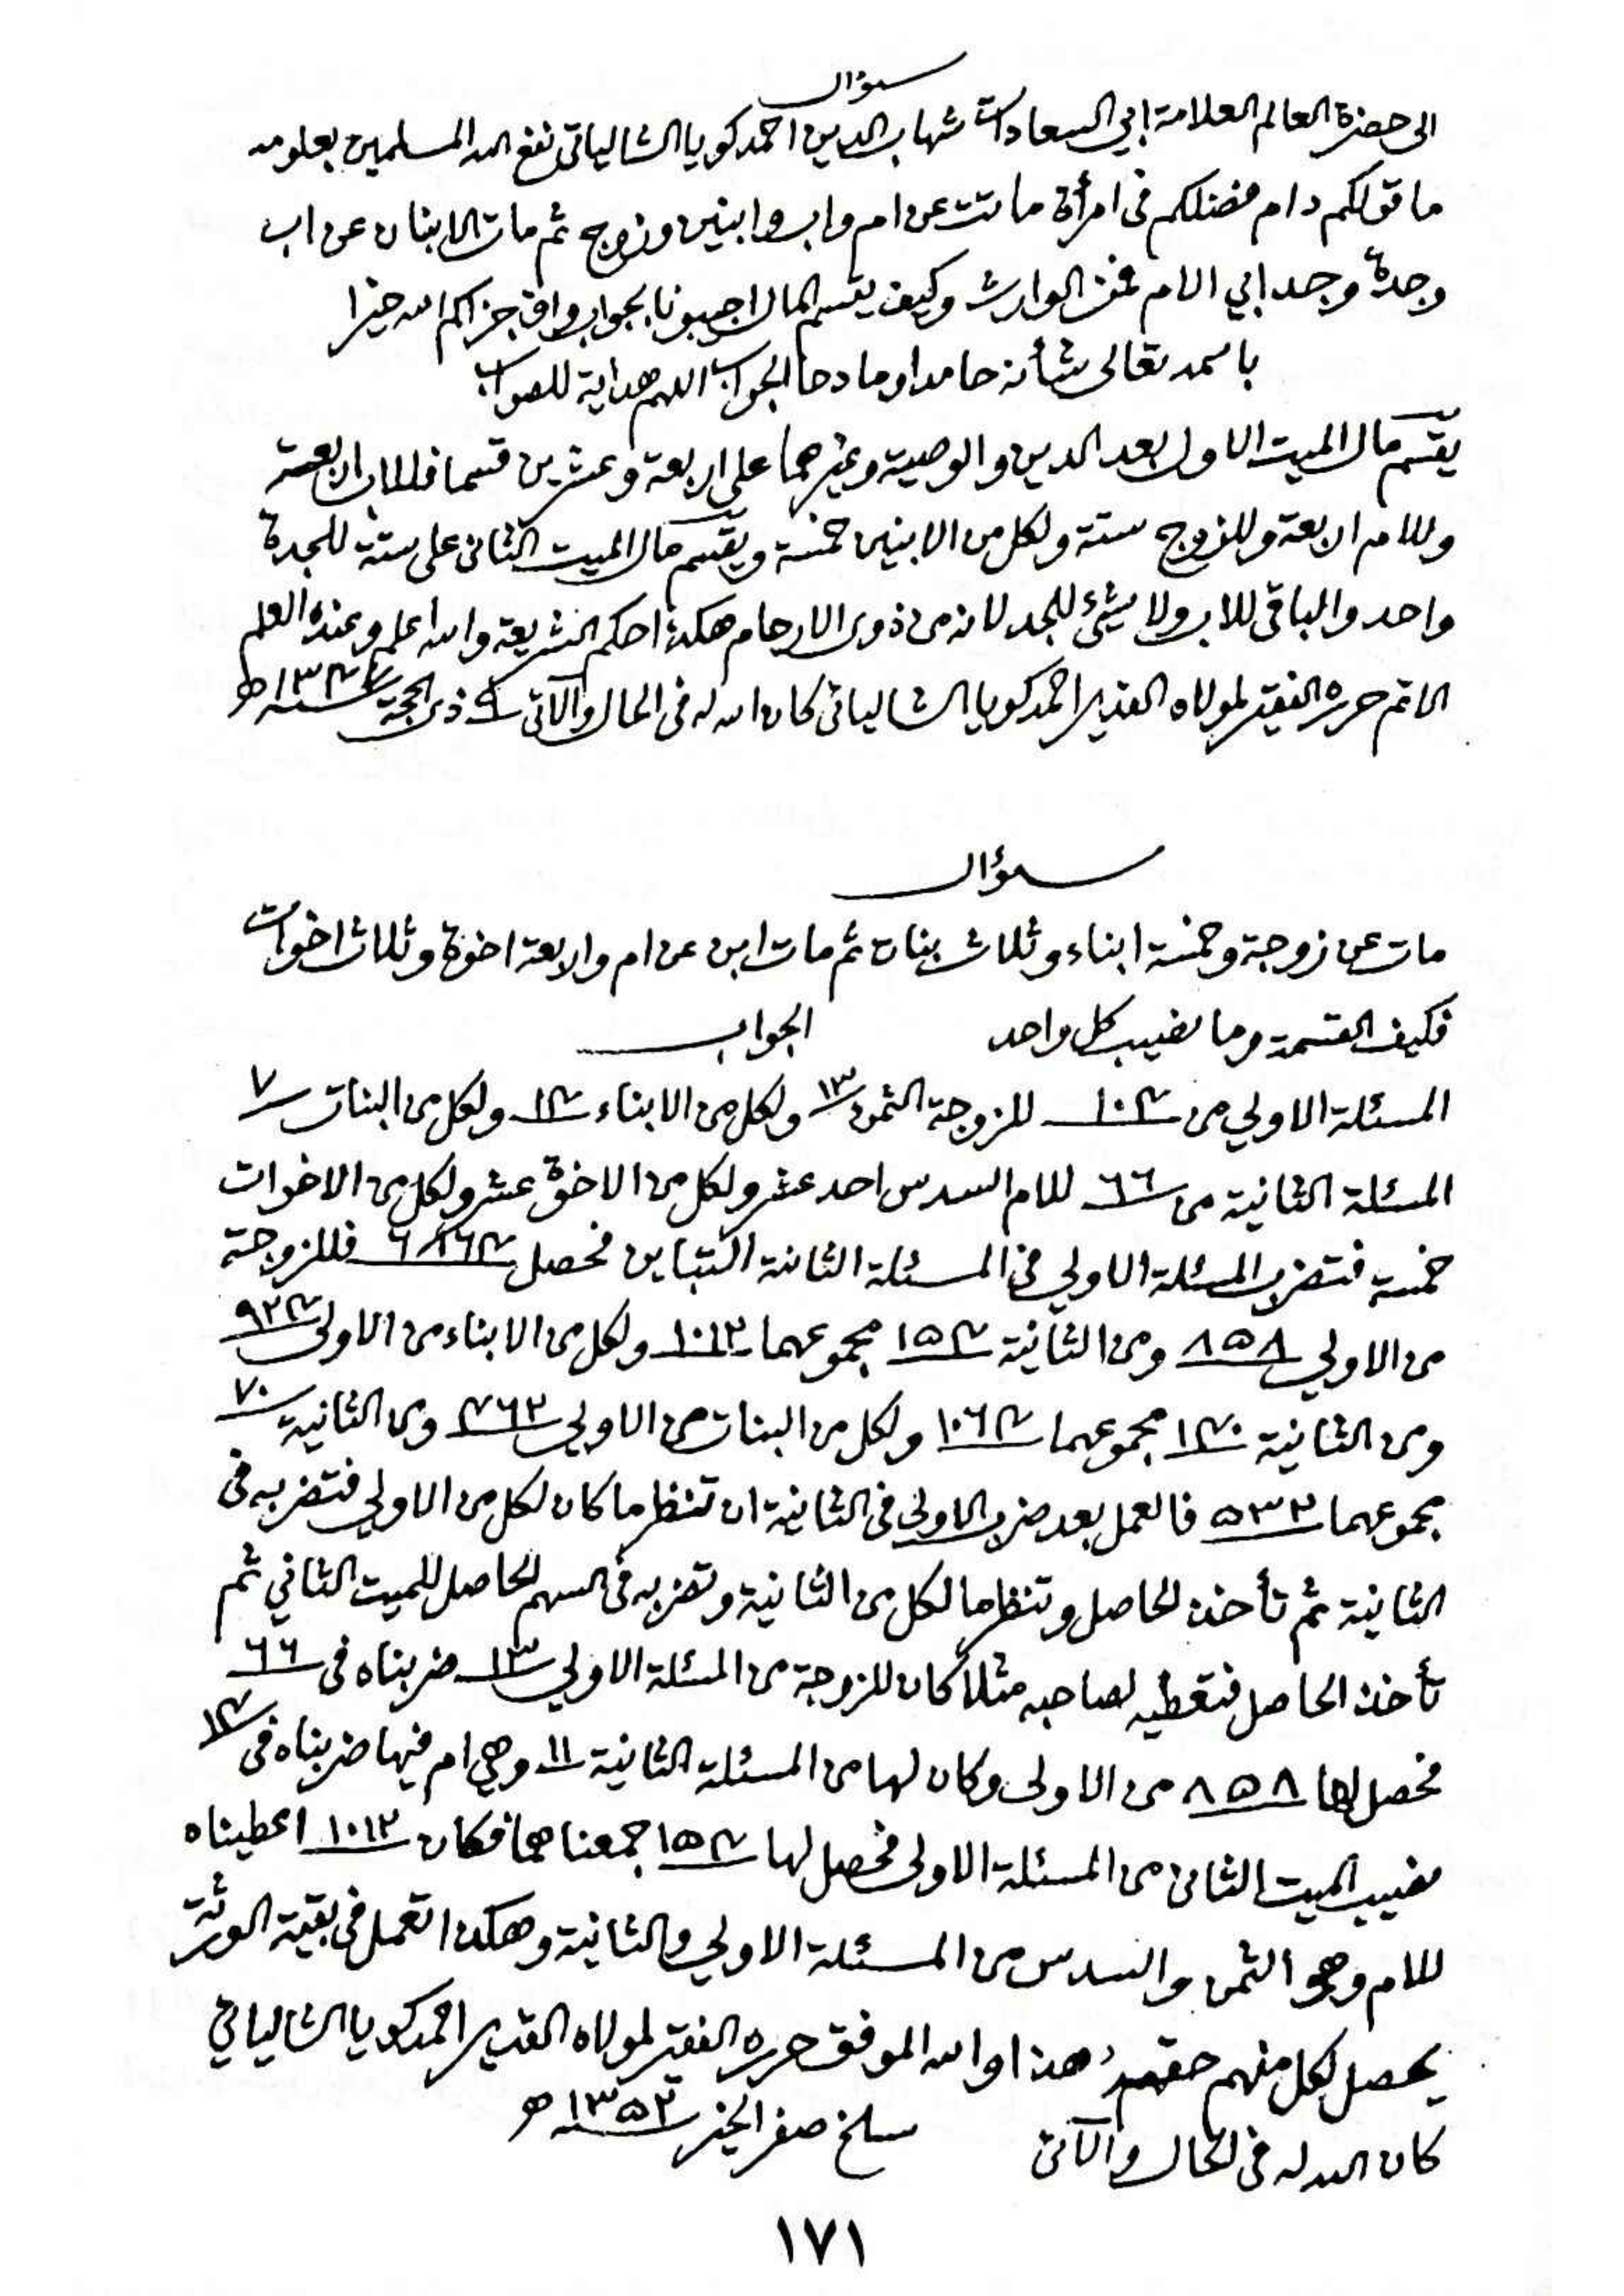 سؤال
الى حضرة العالم العلامة ابي السعادات شهاب الدين احمد كويا الشالياتي نفع الله المسلمين بعلومه
ما قولكم دام فضلكم في امرأة ماتت عن ام واب وابنين وزوج ثم مات الابنان عن اب
وجدة وجد ابي الام فمن الوارث وكيف يقسم المال اجيبونا بجواب واف جزاكم الله خيرا
باسمه تعالى شأنه حامدا ومادحا الجواب اللهم هداية للصواب
يقسم مال الميت الاول بعد الدين والوصية وغيرهما على اربعة وعشرين قسما فللاب اربعة
وللام اربعة وللزوج ستة ولكل من الابنين خمسة ويقسم مال الميت الثاني على ستة للجدة
واحد والباقي للاب ولا شئ للجد لانه من ذوي الارحام هكذا حكم الشريعة والله اعلم وعنده العلم
الاتم حرره الفقير لمولاه القدير احمد كويا الشالياتي كان الله له في الحال والآتي ٩ ذي الحجة سنة ١٣٤٧ ھ
سؤال
مات عن زوجة وخمسة ابناء وثلاث بنات ثم مات ابن عن ام واربعة اخوة وثلاث اخوات
فكيف القسمة وما نصيب كل واحد الجواب
المسئلة الاولي من ١٠٤ للزوجة الثمن ١٣ ولكل من الابناء ١٤ ولكل من البنات ٧
المسئلة الثانية من ٦٦ للام السدس احد عشر ولكل من الاخوة عشر ولكل من الاخوات
خمسة فتضرب المسئلة الاولي في المسئلة الثانية التباين فحصل ٦٨٦٤ فللزوجة
من الاولي ٨٥٨ ومن الثانية ١٥٤ مجموعهما ١٠١٢ ولكل من الابناء من الاولى ٩٢٤
ومن الثانية ١٤٠ مجموعهما ١٠٦٤ ولكل من البنات من الاولي ٤٦٢ ومن الثانية ٧٠
مجموعهما ٥٣٢ فالعمل بعد ضرب الاولى في الثانية ان تنظر ما كان لكل من الاولي فتضربه في
الثانية ثم تأخذ الحاصل وتنظر ما لكل من الثانية وتضربه في السهم الحاصل للميت الثاني ثم
تأخذ الحاصل فتعطيه لصاحبه مثلا كان للزوجة من المسئلة الاولي ١٣ ضربناه في ٦٦
فحصل لها ٨٥٨ من الاولى وكان لها من المسئلة الثانية ١١ وهي ام فيها ضربناه في ١٤
نصيب الميت الثاني من المسئلة الاولى فحصل لها ١٥٤ جمعناهما فكان ١٠١٢ اعطيناه
للام وهو الثمن والسدس من المسئلة الاولي والثانية وهكذا تعمل في بقية الورثة
يحصل لكل منهم حقهم هذا والله الموفق حرره الفقير لمولاه القدير احمد كويا الشالياتي
كان الله له في الحال والآتي سلخ صفر الخير سنة ١٣٥٢ ھ
١٧١